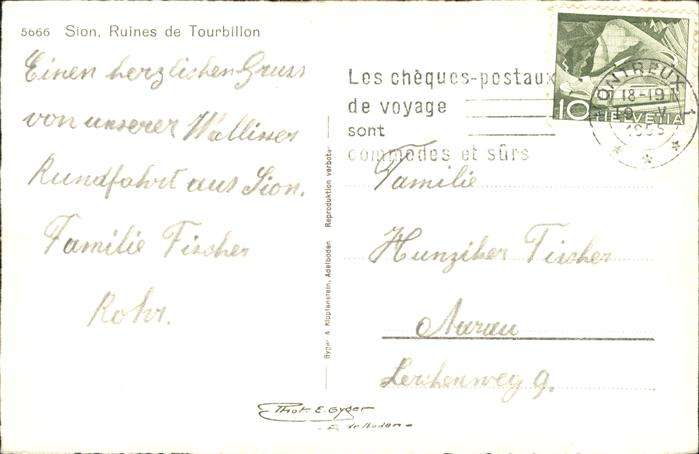 5666 Sion, Ruines de Tourbillon
Einen herzlichen Gruss
von unserer Walliser
Rundfahrt aus Sion.
Familie Fischer
Rohr.
Les chèques-postaux
de voyage
sont
commodes et sûrs
MONTREUX 1
18-19
V
10
HELVETIA
Familie
Hunziker Fischer
Aarau
Lerchenweg 9.
Gyger & Klopfenstein, Adelboden Reproduktion verbot.
Phot E. Gyger
Adelboden